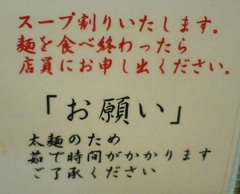 スープ割りいたします。
麺を食べ終わったら
店員にお申し出ください。
「お願い」
太麺のため
茹で時間がかかります
ご了承ください